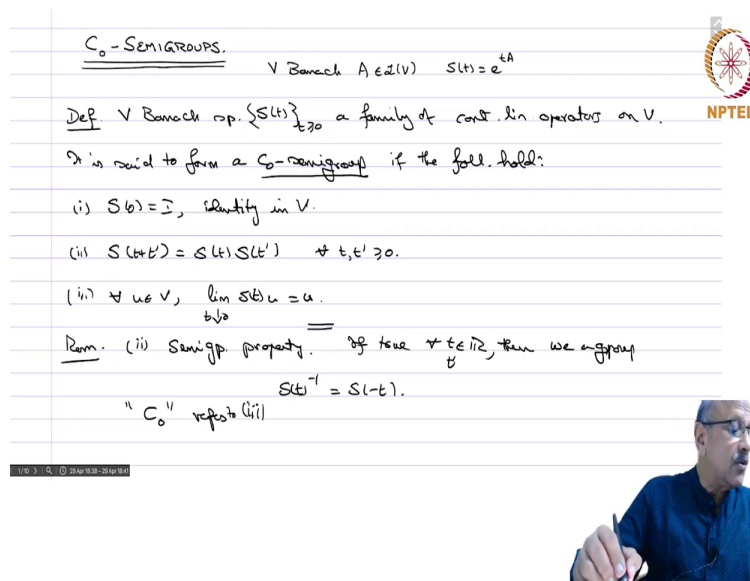 C₀-SEMIGROUPS.
V Banach A ∈ L(V) S(t) = e^{tA}
Def. V Banach sp. {S(t)}_{t≥0} a family of cont. lin operators on V.
It is said to form a C₀-semigroup if the foll. hold:
(i) S(0) = I, identity in V.
(ii) S(t+t') = S(t)S(t') ∀ t,t' ≥0.
(iii) ∀ u∈V, lim_{t↓0} S(t)u = u.
Rem. (ii) Semigp. property. If true ∀ t, t' ∈ ℝ, then we a group
S(t)^{-1} = S(-t).
"C₀" refers to (iii)
NPTEL
1/10 29 Apr 18:38 - 29 Apr 18:41